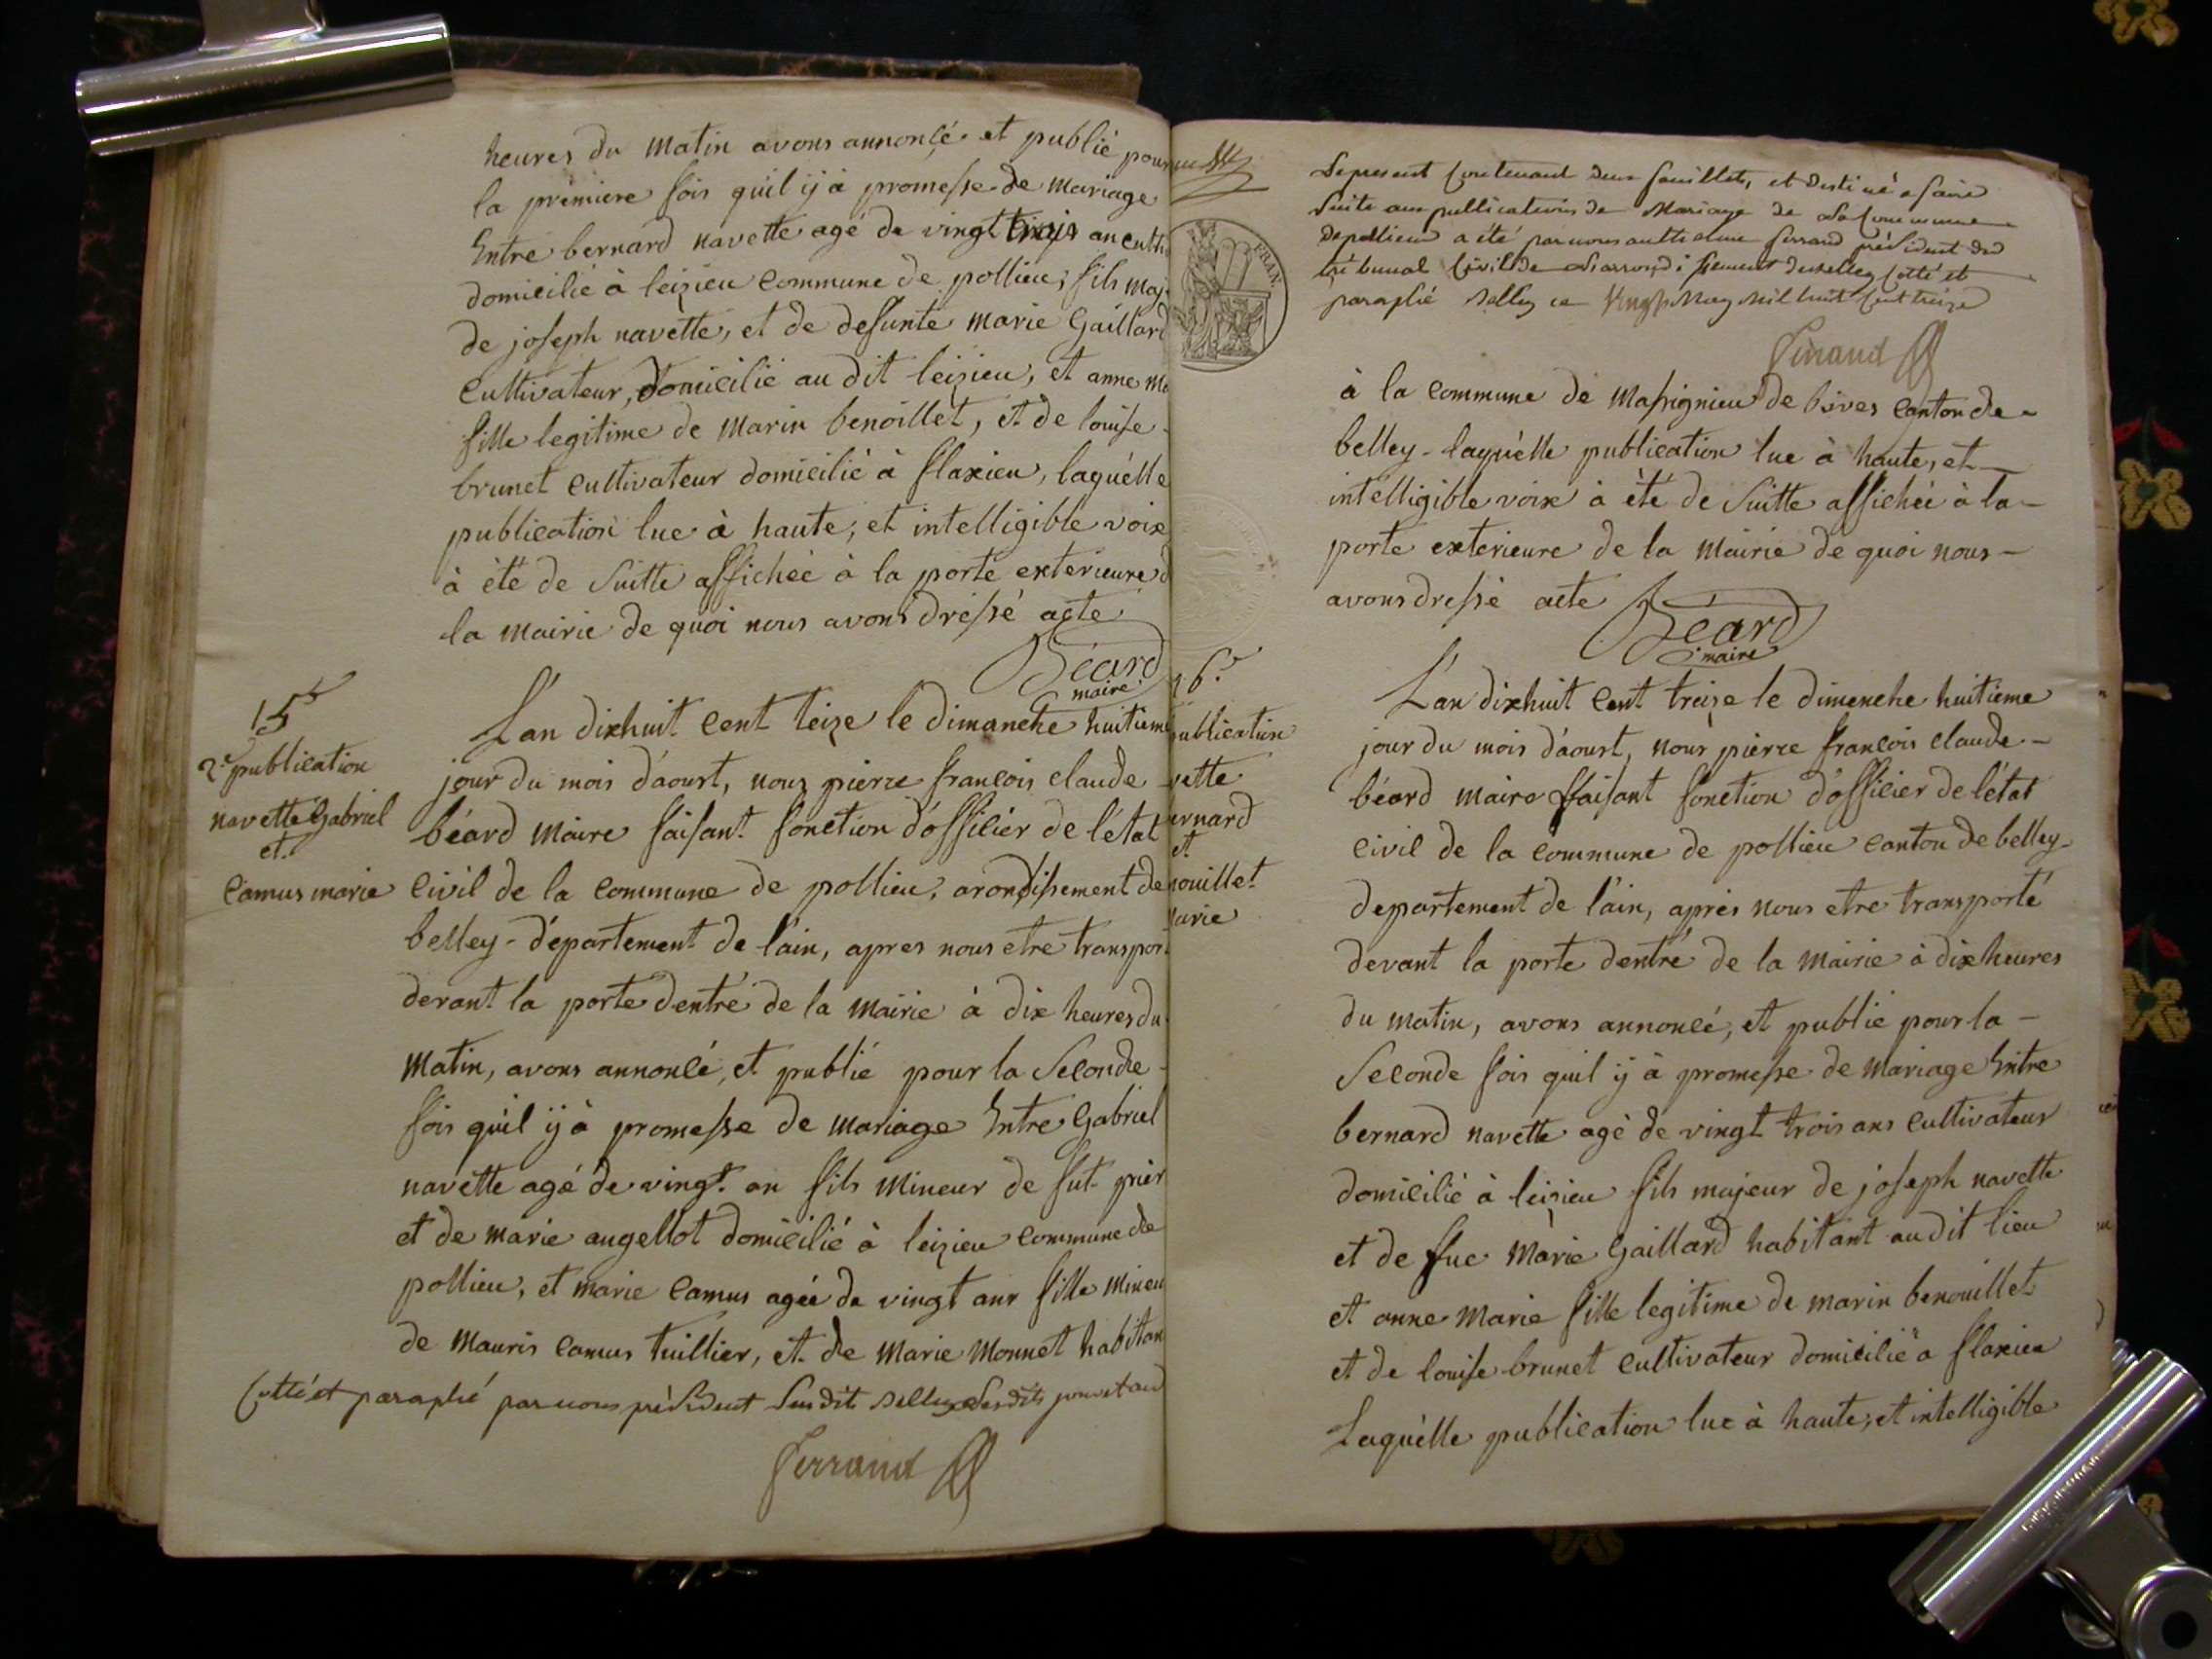 heures du matin avons annonçé et publié pour
la premiere fois quil ij à promesse de mariage
Entre bernard navette agé de vingt trois an cultiv
domicilié à leizieu commune de pollieu, fils maj
de joseph navette, et de defunte marie Gaillard
Cultivateur, domicilié au dit leizieu, et anne ma
fille legitime de marin benoillet, et de louise
brunet cultivateur domicilié à flaxieu, laquélle
publication lue à haute, et intelligible voix
à été de suitte affichée à la porte exterieure d
la mairie de quoi nous avons dréssé acte
Béard
maire
15e
2e publication
navette Gabriel
et
Camus marie
L'an dixhuit cent teize le dimanche huitieme
jour du mois d'aoust, nous pierre francois claude
béard maire faisant fonction d'officier de l'état
Civil de la commune de pollieu, arondissement de
belley - département de l'ain, apres nous etre transpor
devant la porte d'entré de la mairie à dix heures du
matin, avons annoncé, et publié pour la seconde
fois quil ij à promesse de mariage Entre Gabriel
navette agé de vingt an fils mineur de fut pier
et de marie augellot domicilié à leizieu commune de
pollieu, et marie Camus agée de vingt ans fille mineu
de mauris Camus tuillier, et de marie monnet habitan
Cotté et paraphé par nous président susdit Belley susdits jour et an
Ferrand
Le present contenant deux feuillets, et destiné a faire
suite aux publications de mariage de la commune
de pollieu a été par nous anthelme ferrand président du
tribunal civil de l'arrondissement de belley cotté et
paraphé Belley ce vingt may mil huit cent treize
Ferrand
FRAN.
à la commune de massignieu de rives canton de
belley - laquélle publication lue à haute, et
intélligible voix à été de suitte affichée à la
porte exterieure de la mairie de quoi nous
avons dressé acte
Béard
maire
16e
publication
vette
ernard
et
nouillet
marie
L'an dixhuit cent treize le dimenche huitieme
jour du mois d'aoust, nous pierre francois claude
béard maire ffaisant fonction d'officier de l'état
civil de la commune de pollieu canton de belley
departement de l'ain, après nous etre transporté
devant la porte d'entré de la mairie à dix heures
du matin, avons annoncé, et publié pour la
seconde fois quil ij à promesse de mariage Entre
bernard navette agé de vingt trois ans cultivateur
domicilié à leizieu fils majeur de joseph navette
et de ffue marie Gaillard habitant au dit lieu
et anne marie fille legitime de marin benouillet
et de louise brunet cultivateur domicilié à flaxieu
Laquélle publication lue à haute, et intelligible